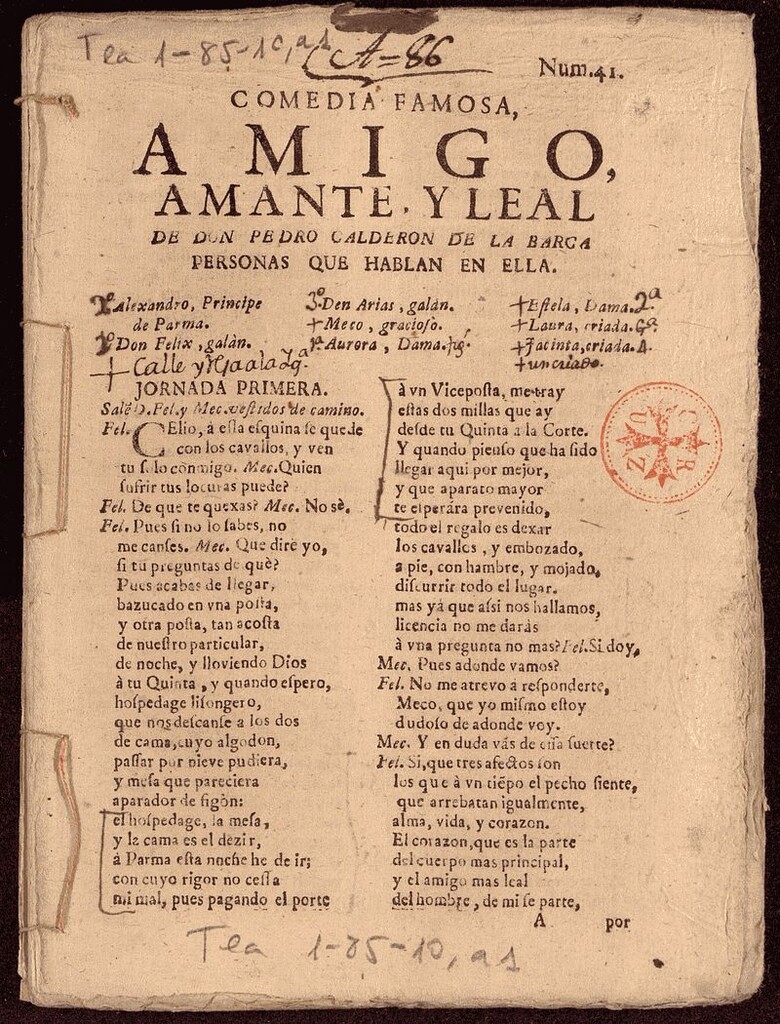 Tea 1-85-10, a1
A=86
Num.41.
COMEDIA FAMOSA,
AMIGO,
AMANTE, Y LEAL
DE DON PEDRO CALDERON DE LA BARCA
PERSONAS QUE HABLAN EN ELLA.
2º Alexandro, Principe
de Parma.
1º Don Felix, galàn.
3º Don Arias, galàn.
+ Meco, gracioso.
1ª Aurora, Dama.
+ Estela, Dama. 2ª
+ Laura, criada.
+ Jacinta, criada. 4.
+ un criado.
+ Calle y
JORNADA PRIMERA.
Salē D. Fel. y Mec. vestidos de camino.
Fel. CElio, à essa esquina se quede
con los cavallos, y ven
tu solo conmigo. Mec. Quien
sufrir tus locuras puede?
Fel. De que te quexas? Mec. No sè.
Fel. Pues si no lo sabes, no
me canses. Mec. Que dirè yo,
si tu preguntas de què?
Pues acabas de llegar,
bazucado en vna posta,
y otra posta, tan acosta
de nuestro particular,
de noche, y lloviendo Dios
à tu Quinta, y quando espero,
hospedage lisongero,
que nos descanse a los dos
de cama, cuyo algodon,
passar por nieve pudiera,
y mesa que pareciera
aparador de figòn:
el hospedage, la mesa,
y la cama es el dezir,
à Parma esta noche he de ir;
con cuyo rigor no cessa
mi mal, pues pagando el porte
à vn Viceposta, me tray
estas dos millas que ay
desde tu Quinta a la Corte.
Y quando pienso que ha sido
llegar aqui por mejor,
y que aparato mayor
te esperàra prevenido,
todo el regalo es dexar
los cavallos, y embozado,
a pie, con hambre, y mojado,
discurrir todo el lugar.
mas yà que assi nos hallamos,
licencia no me daràs
à vna pregunta no mas? Fel. Si doy,
Mec. Pues adonde vamos?
Fel. No me atrevo à responderte,
Meco, que yo mismo estoy
dudoso de adonde voy.
Mec. Y en duda vàs de essa suerte?
Fel. Si, que tres afectos son
los que à vn tiēpo el pecho siente,
que arrebatan igualmente,
alma, vida, y corazon.
El corazon, que es la parte
del cuerpo mas principal,
y el amigo mas leal
del hombre, de mi se parte,
A por
CRUZ
Tea 1-85-10, a1